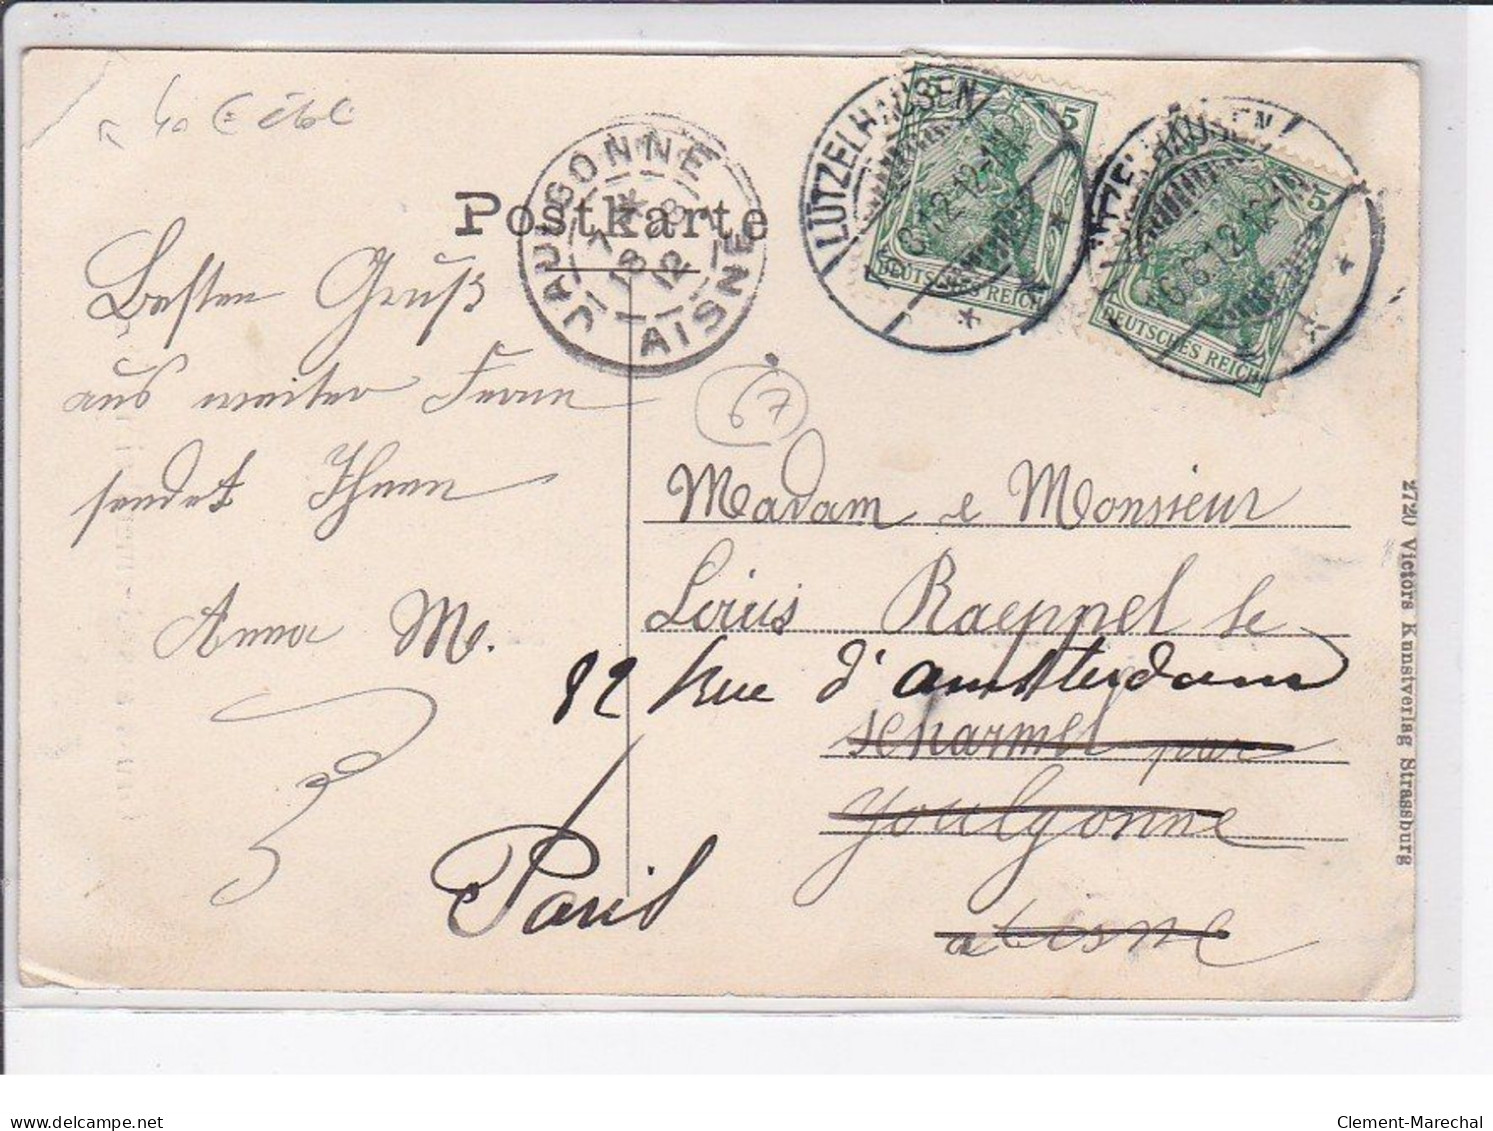 40 €
Postkarte
JAULGONNE
AISNE
18 8
12
LÜTZELHAUSEN
LÜTZELHAUSEN
16.8.12.12-1N
5
DEUTSCHES REICH
5
DEUTSCHES REICH
67
Besten Gruß
aus weiter Ferne
sendet Ihnen
Anna M.
Madam e Monsieur
Louis Raeppel
82 Rue d'amsterdam
Paris
scharmel par
Youlgonne
aisne
2720 Victors Kunstverlag Strassburg
Clement-Marechal
delcampe.net